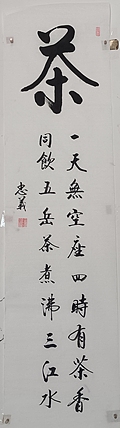 茶
一天無空座四時有茶香
同飲五岳茶煮沸三江水
忠義